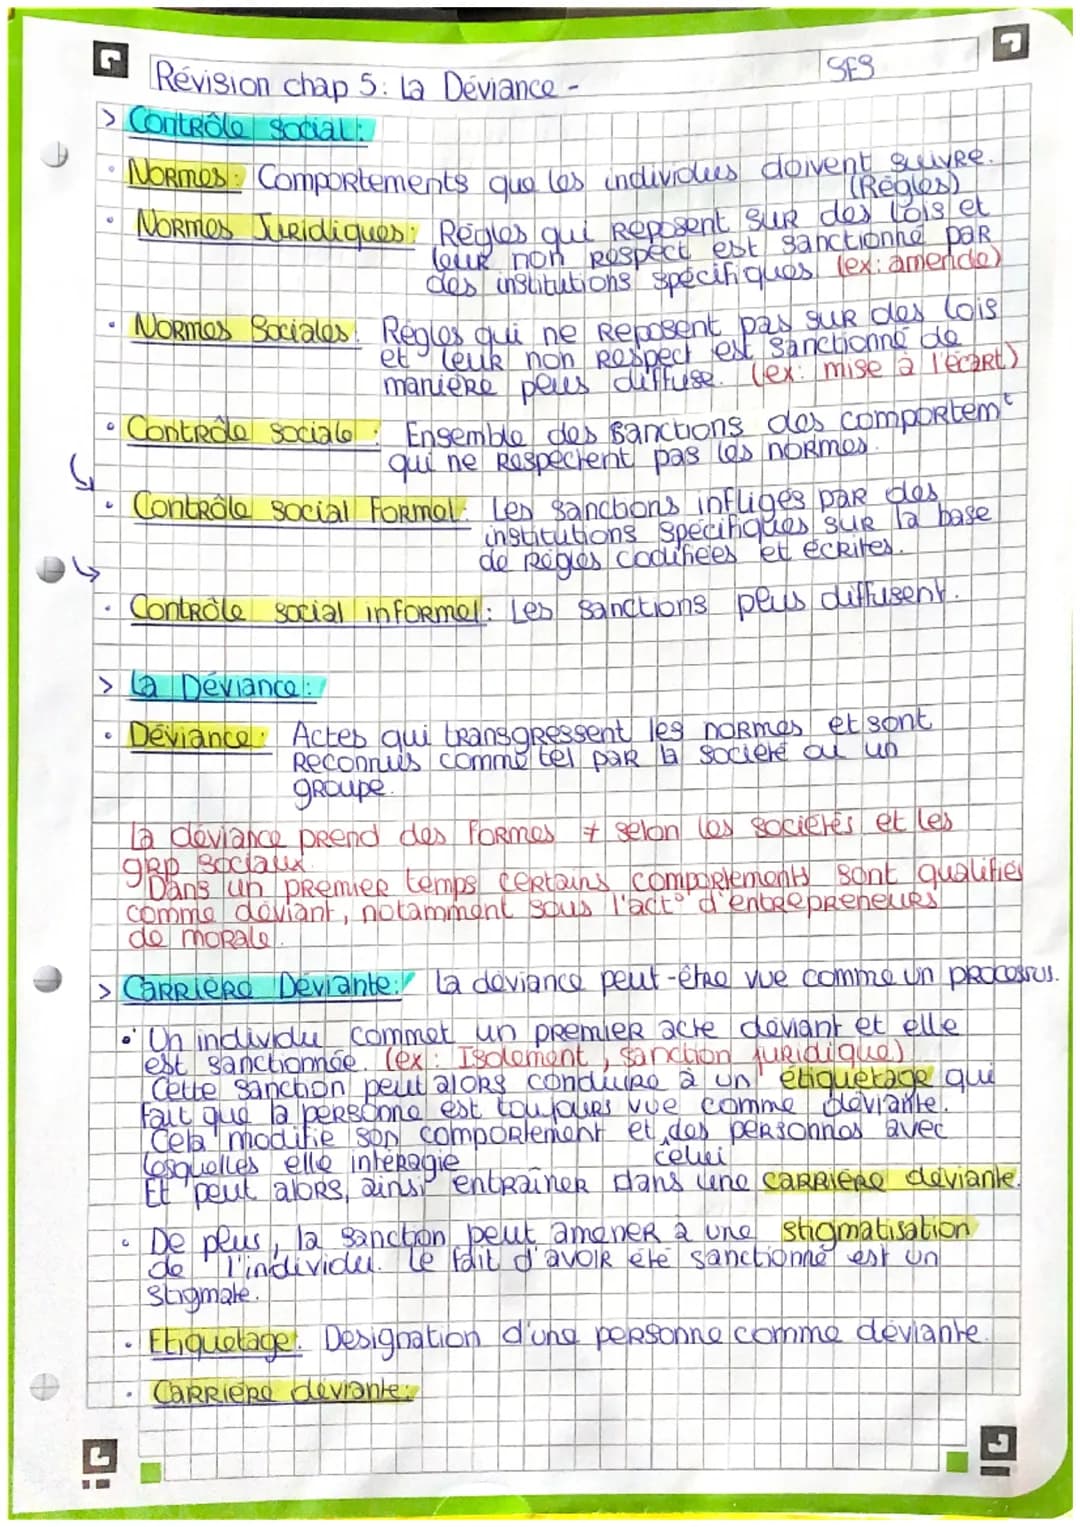 Révision chap 5: La Déviance -
SES
> Contrôle social:
• Normes: Comportements que les individus doivent suivre.
(Règles)
• Normes Juridiques: Règles qui reposent sur des lois et
leur non respect est sanctionné par
des institutions spécifiques (ex: amende)
• Normes Sociales: Règles qui ne reposent pas sur des lois
et leur non respect est sanctionné de
manière plus diffuse. (ex: mise à l'écart)
• Contrôle sociale: Ensemble des sanctions des comportemt
qui ne respectent pas les normes.
• Contrôle social Formel: Les sanctions infligés par des
institutions spécifiques sur la base
de règles codifiées et écrites.
• Contrôle social informel: Les sanctions plus diffusent.
> La Déviance:
• Déviance: Actes qui transgressent les normes et sont
reconnus comme tel par la société ou un
groupe.
La déviance prend des formes ≠ selon les sociétés et les
grp sociaux.
Dans un premier temps certains comportements sont qualifiés
comme déviant, notamment sous l'act° d'entrepreneurs
de morale.
> Carrière Déviante: La déviance peut-être vue comme un processus.
• Un individu commet un premier acte déviant et elle
est sanctionnée. (ex: Isolement, sanction juridique)
Cette sanction peut alors conduire à un étiquetage qui
fait que la personne est toujours vue comme déviante.
Cela modifie son comportement et des personnes avec
celui
lesquelles elle intéragie
Et peut alors, ainsi entraîner dans une carrière déviante.
• De plus, la sanction peut amener à une stigmatisation
de l'individu. Le fait d'avoir été sanctionné est un
stigmate.
• Etiquetage: Désignation d'une personne comme déviante.
• Carrière déviante: